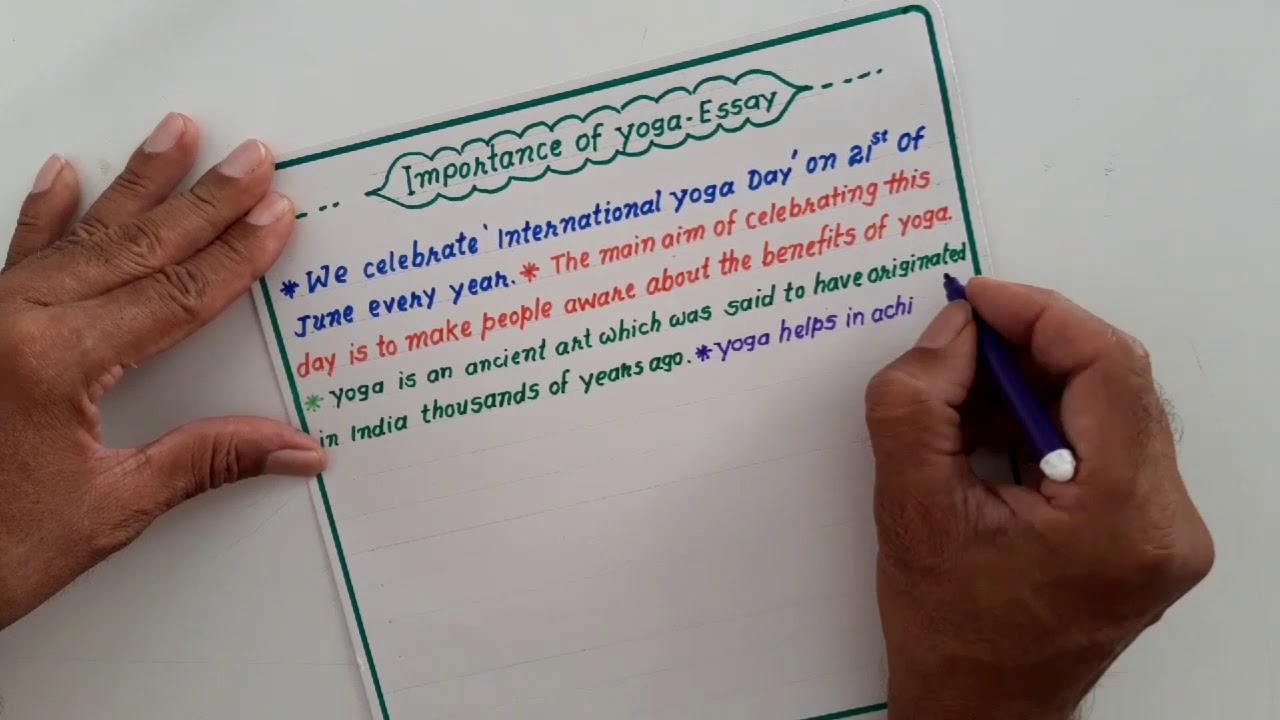 Importance of yoga-Essay
* We celebrate 'International yoga Day' on 21st of
June every year. * The main aim of celebrating this
day is to make people aware about the benefits of yoga.
* yoga is an ancient art which was said to have originated
in India thousands of years ago. * yoga helps in achi